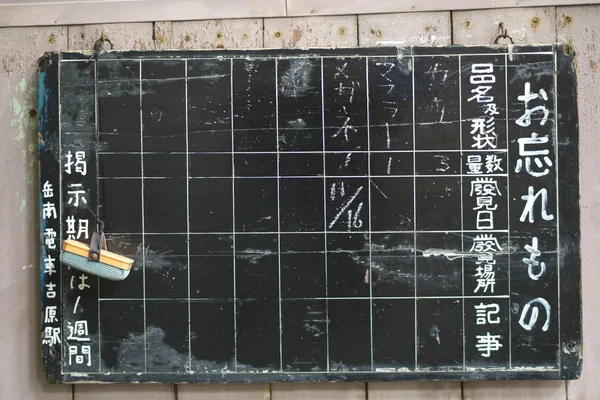 お忘れもの
品名及形状
数量
發見日
發見場所
記事
カサ 3
マフラー 1
メガネ 1 11/16
掲示期 は1週間
岳南電車吉原駅